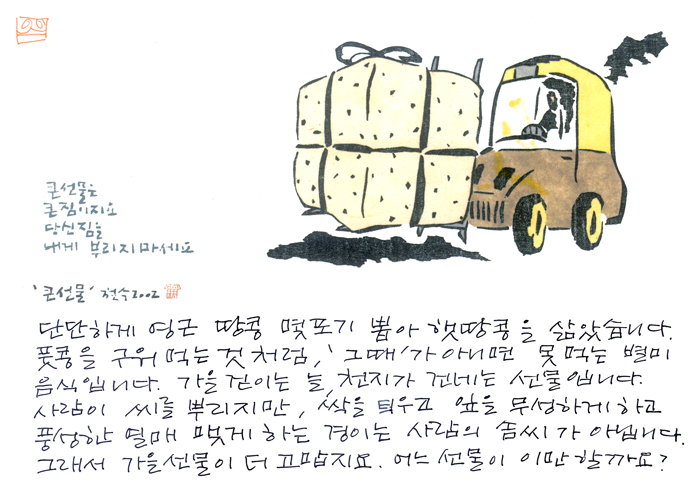 큰선물은
큰짐이지요
당신짐을
내게 부리지마세요
'큰선물' 철수2002
단단하게 영근 땅콩 몇포기 뽑아 햇땅콩을 삶았습니다.
풋콩을 구워 먹는 것 처럼, '그때'가 아니면 못 먹는 별미
음식입니다. 가을걷이는 늘, 천지가 건네는 선물입니다.
사람이 씨를 뿌리지만, 싹을 틔우고 잎을 무성하게 하고
풍성한 열매 맺게 하는 경이는 사람의 솜씨가 아닙니다.
그래서 가을선물이 더 고맙지요. 어느 선물이 이만 할까요?